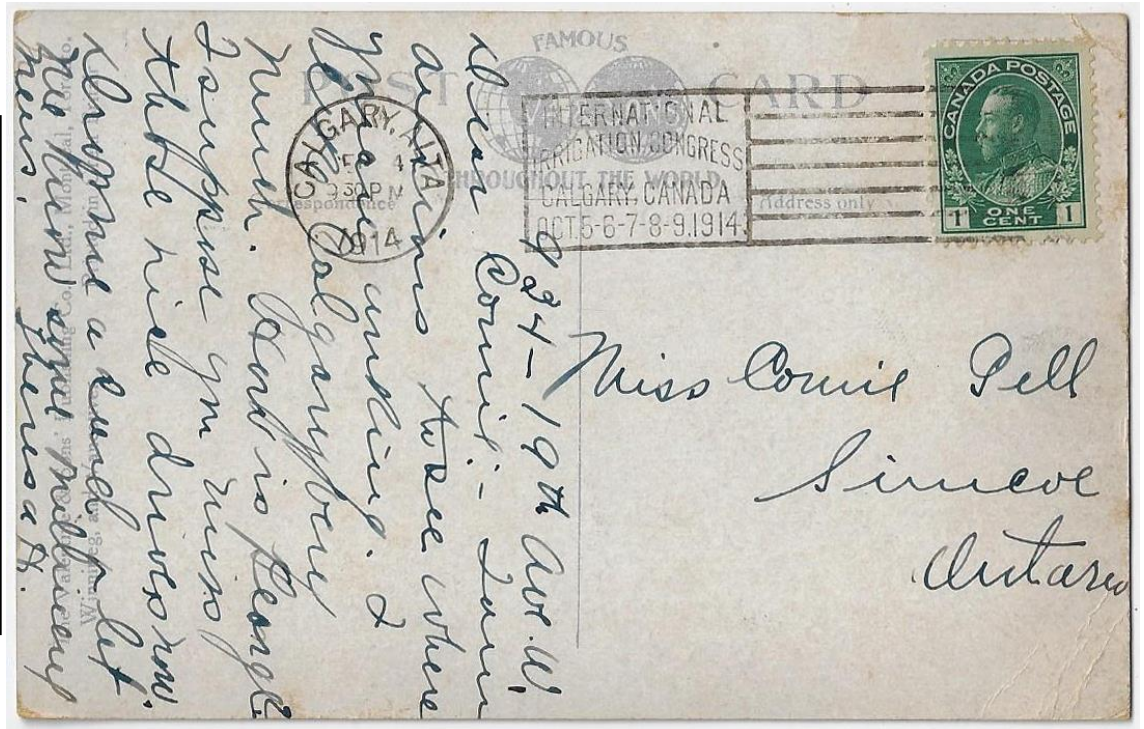 FAMOUS
POST CARD
THROUGHOUT THE WORLD.
Correspondence
Address only
CALGARY, ALTA
4
930 P M
1914
INTERNATIONAL
IRRIGATION CONGRESS
CALGARY, CANADA
OCT. 5-6-7-8-9. 1914
CANADA POSTAGE
1 ONE CENT 1
Miss Connie Pell
Simcoe
Ontario
924-19th Ave. W.
Dear Connie:- I am
anxious to see where
you are working. I
like Calgary very
much. How is George
I suppose you miss
those nice drives now.
Drop me a card & let
me know your millinery
news.
Theresa
Winnipeg, and